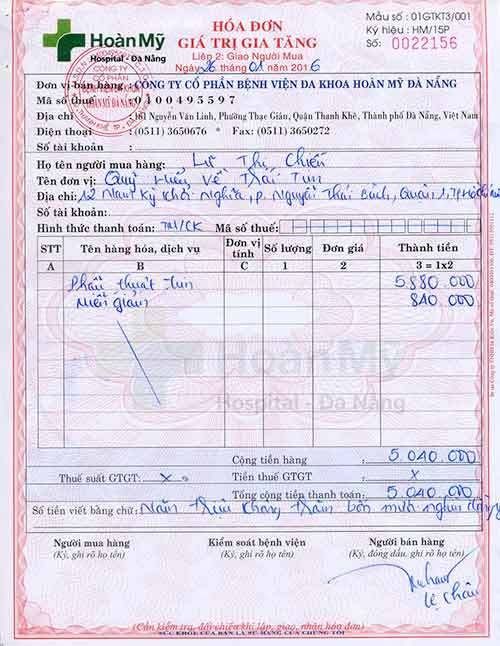 HÓA ĐƠN
GIÁ TRỊ GIA TĂNG
Liên 2: Giao Người Mua
Ngày 26 tháng 01 năm 2016
Mẫu số : 01GTKT3/001
Ký hiệu : HM/15P
Số: 0022156
Hoàn Mỹ
Hospital - Đa Nẵng
CÔNG TY
CỔ PHẦN
HOÀN MỸ ĐÀ NẴNG
Đơn vị bán hàng : CÔNG TY CỔ PHẦN BỆNH VIỆN ĐA KHOA HOÀN MỸ ĐÀ NẴNG
Mã số thuế : 0400495597
Địa chỉ : 161 Nguyễn Văn Linh, Phường Thạc Gián, Quận Thanh Khê, Thành phố Đà Nẵng, Việt Nam
Điện thoại : (0511) 3650676 * Fax: (0511) 3650272
Số tài khoản :
Họ tên người mua hàng: Lư Thị Chiến
Tên đơn vị: Quỹ Hiểu Về Trái Tim
Địa chỉ: 12 Nam Kỳ Khởi Nghĩa, P. Nguyễn Thái Bình, Quận 1, TP Hồ Chí Minh
Số tài khoản:
Hình thức thanh toán: TM/CK Mã số thuế:
STT Tên hàng hóa, dịch vụ Đơn vị tính Số lượng Đơn giá Thành tiền
A B C 1 2 3 = 1x2
Phẫu thuật tim 5.880.000
Miễn giảm 840.000
Hoàn Mỹ
Hospital - Đa Nẵng
Cộng tiền hàng : 5.040.000
Thuế suất GTGT: x % Tiền thuế GTGT : x
Tổng cộng tiền thanh toán: 5.040.000
Số tiền viết bằng chữ: Năm triệu không trăm bốn mươi nghìn đồng
Người mua hàng Kiểm soát bệnh viện Người bán hàng
(Ký, ghi rõ họ tên) (Ký, ghi rõ họ tên) (Ký, đóng dấu, ghi rõ họ tên)
(Cần kiểm tra, đối chiếu khi lập, giao, nhận hóa đơn)
SỨC KHỎE CỦA BẠN LÀ SỨ MẠNG CỦA CHÚNG TÔI